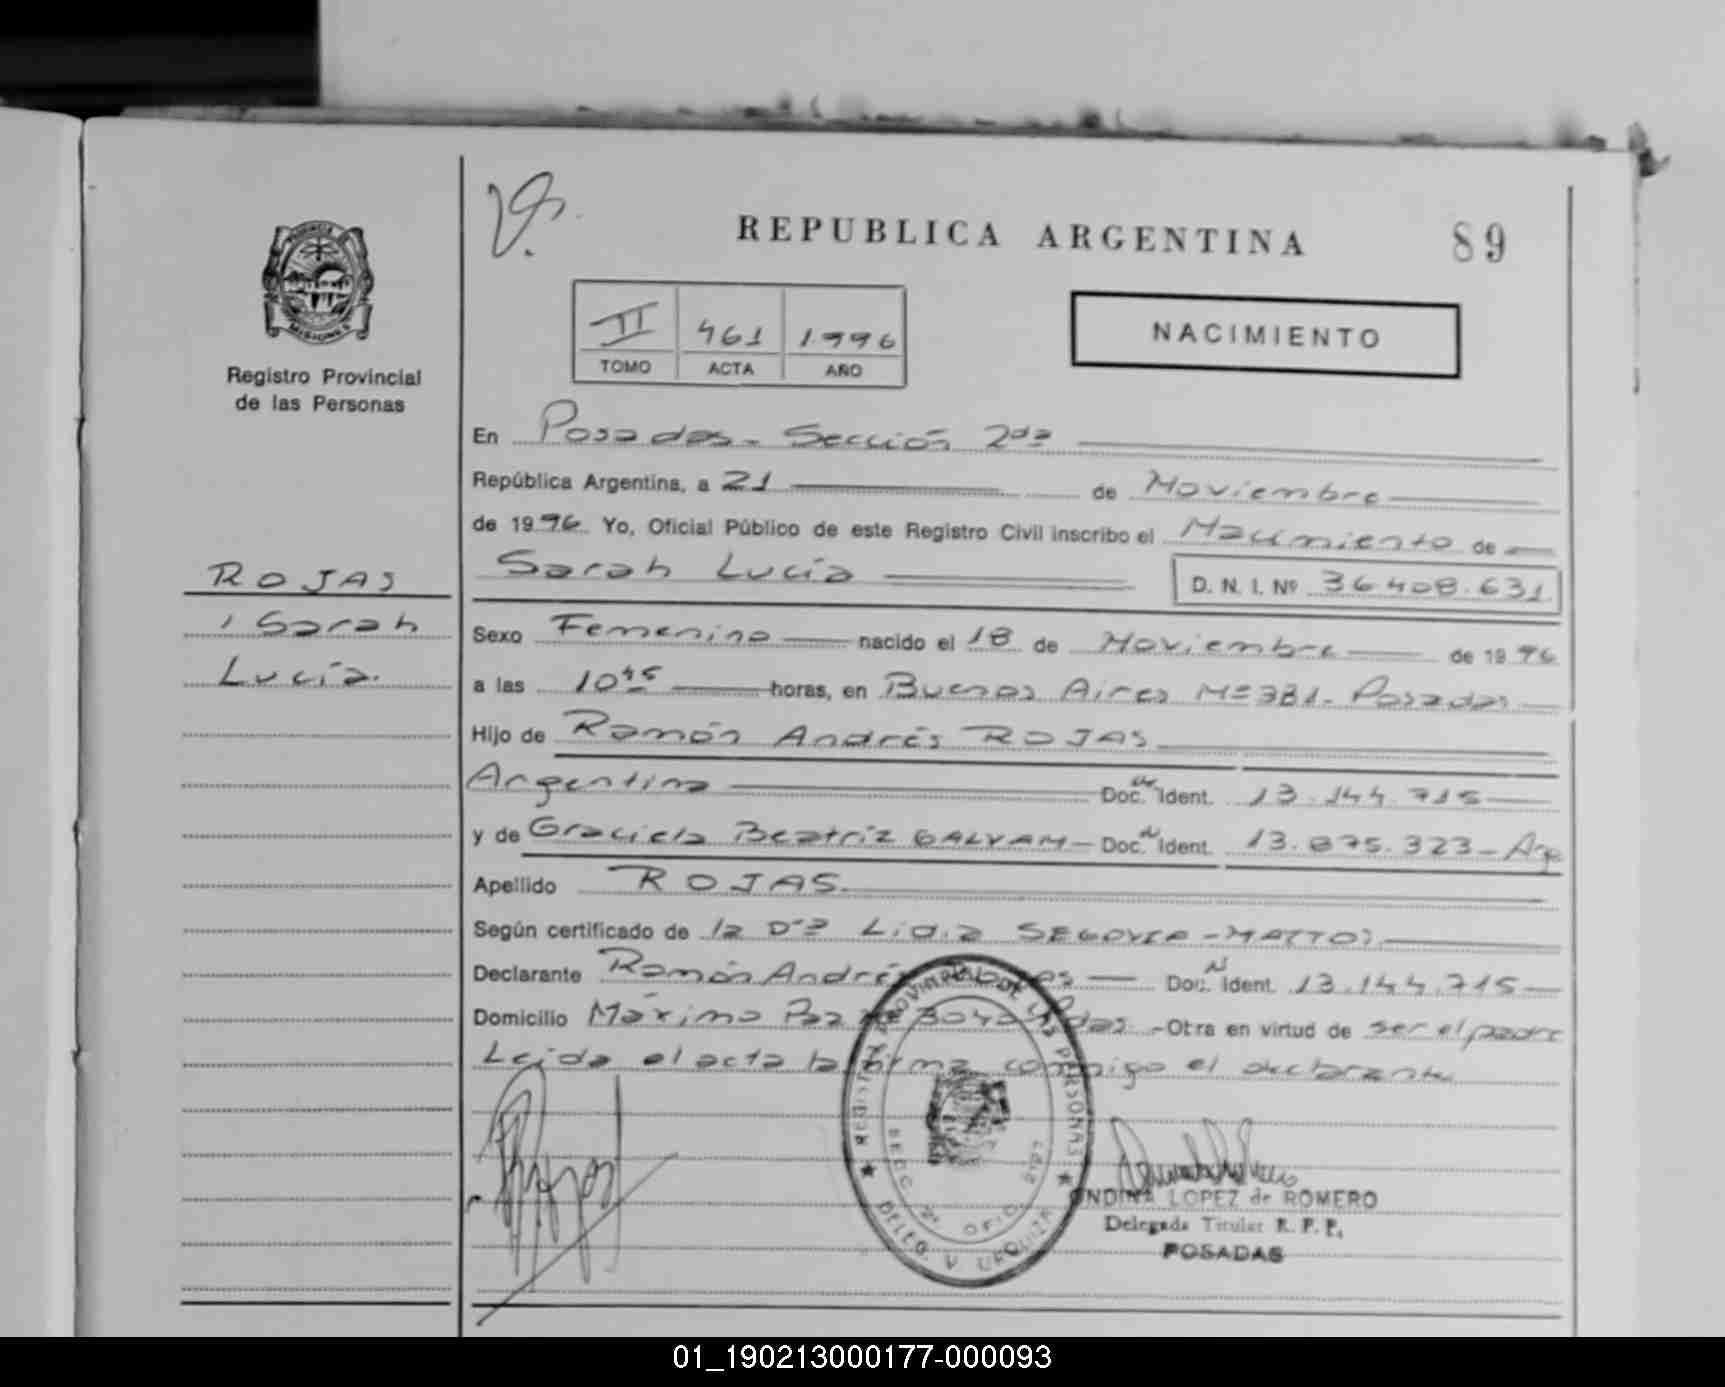 89
REPUBLICA ARGENTINA
PROVINCIA DE
MISIONES
Registro Provincial
de las Personas
II 461 1996
TOMO ACTA AÑO
NACIMIENTO
En Posadas - Sección 2da
República Argentina, a 21 de Noviembre
de 1996. Yo, Oficial Público de este Registro Civil inscribo el Nacimiento de
Sarah Lucía D. N. I. Nº 36.408.631
ROJAS
, Sarah
Lucía.
Sexo Femenino nacido el 18 de Noviembre de 1996
a las 10 45 horas, en Buenos Aires Nº 381 - Posadas
Hijo de Ramón Andrés ROJAS
Argentino Doc. Ident. 13.144.715
y de Graciela Beatriz GALVAN - Doc. Ident. 13.875.323 - Arg
Apellido ROJAS
Según certificado de la Dra Lidia SEGOVIA - MATTOS
Declarante Ramón Andrés Rojas Doc. Ident. 13.144.715
Domicilio Máximo Paz Nº Pdas. - Otra en virtud de ser el padre
Leida el acta la firma conmigo el declarante
REGISTRO PROVINCIAL DE LAS PERSONAS
SECC. 2ª OFIC.
DELEG. V. URQUIZA
ONDINA LOPEZ de ROMERO
Delegada Titular R. P. P.
POSADAS
01_190213000177-000093